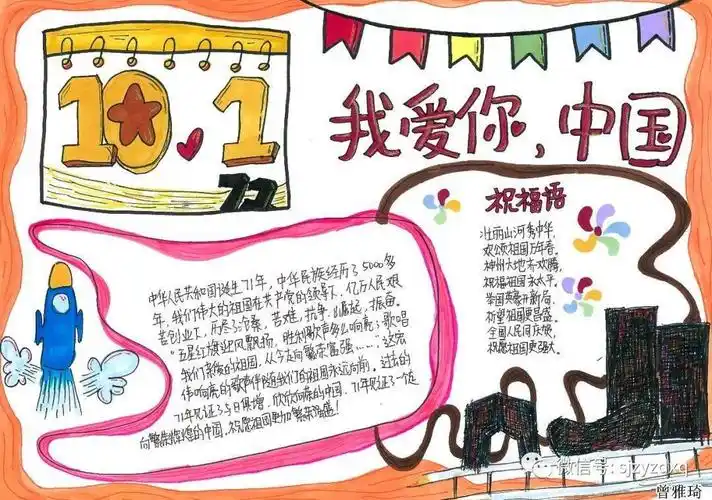 10.1
72
我爱你，中国
祝福语
壮丽山河秀中华，
欢颂祖国万年春。
神州大地齐欢腾，
祝福祖国永太平。
举国英豪开新局，
祈望祖国更昌盛。
全国人民同庆贺，
祝愿祖国更强大。
中华人民共和国诞生71年，中华民族经历了5000多
年，我们伟大的祖国在共产党的领导下，亿万人民艰
苦创业下，历尽了沧桑，苦难，抗争，崛起，振奋。
"五星红旗迎风飘扬，胜利歌声多么响亮；歌唱
我们亲爱的祖国，从今走向繁荣富强……"这宏
伟响亮的歌声伴随我们的祖国永远向前。过去的
71年见证了与日俱增，欣欣向荣的中国，71年见证了一
向繁荣辉煌的中国，祝愿祖国更加繁荣强盛！
微信号：sjzyzqxq
曾雅琦